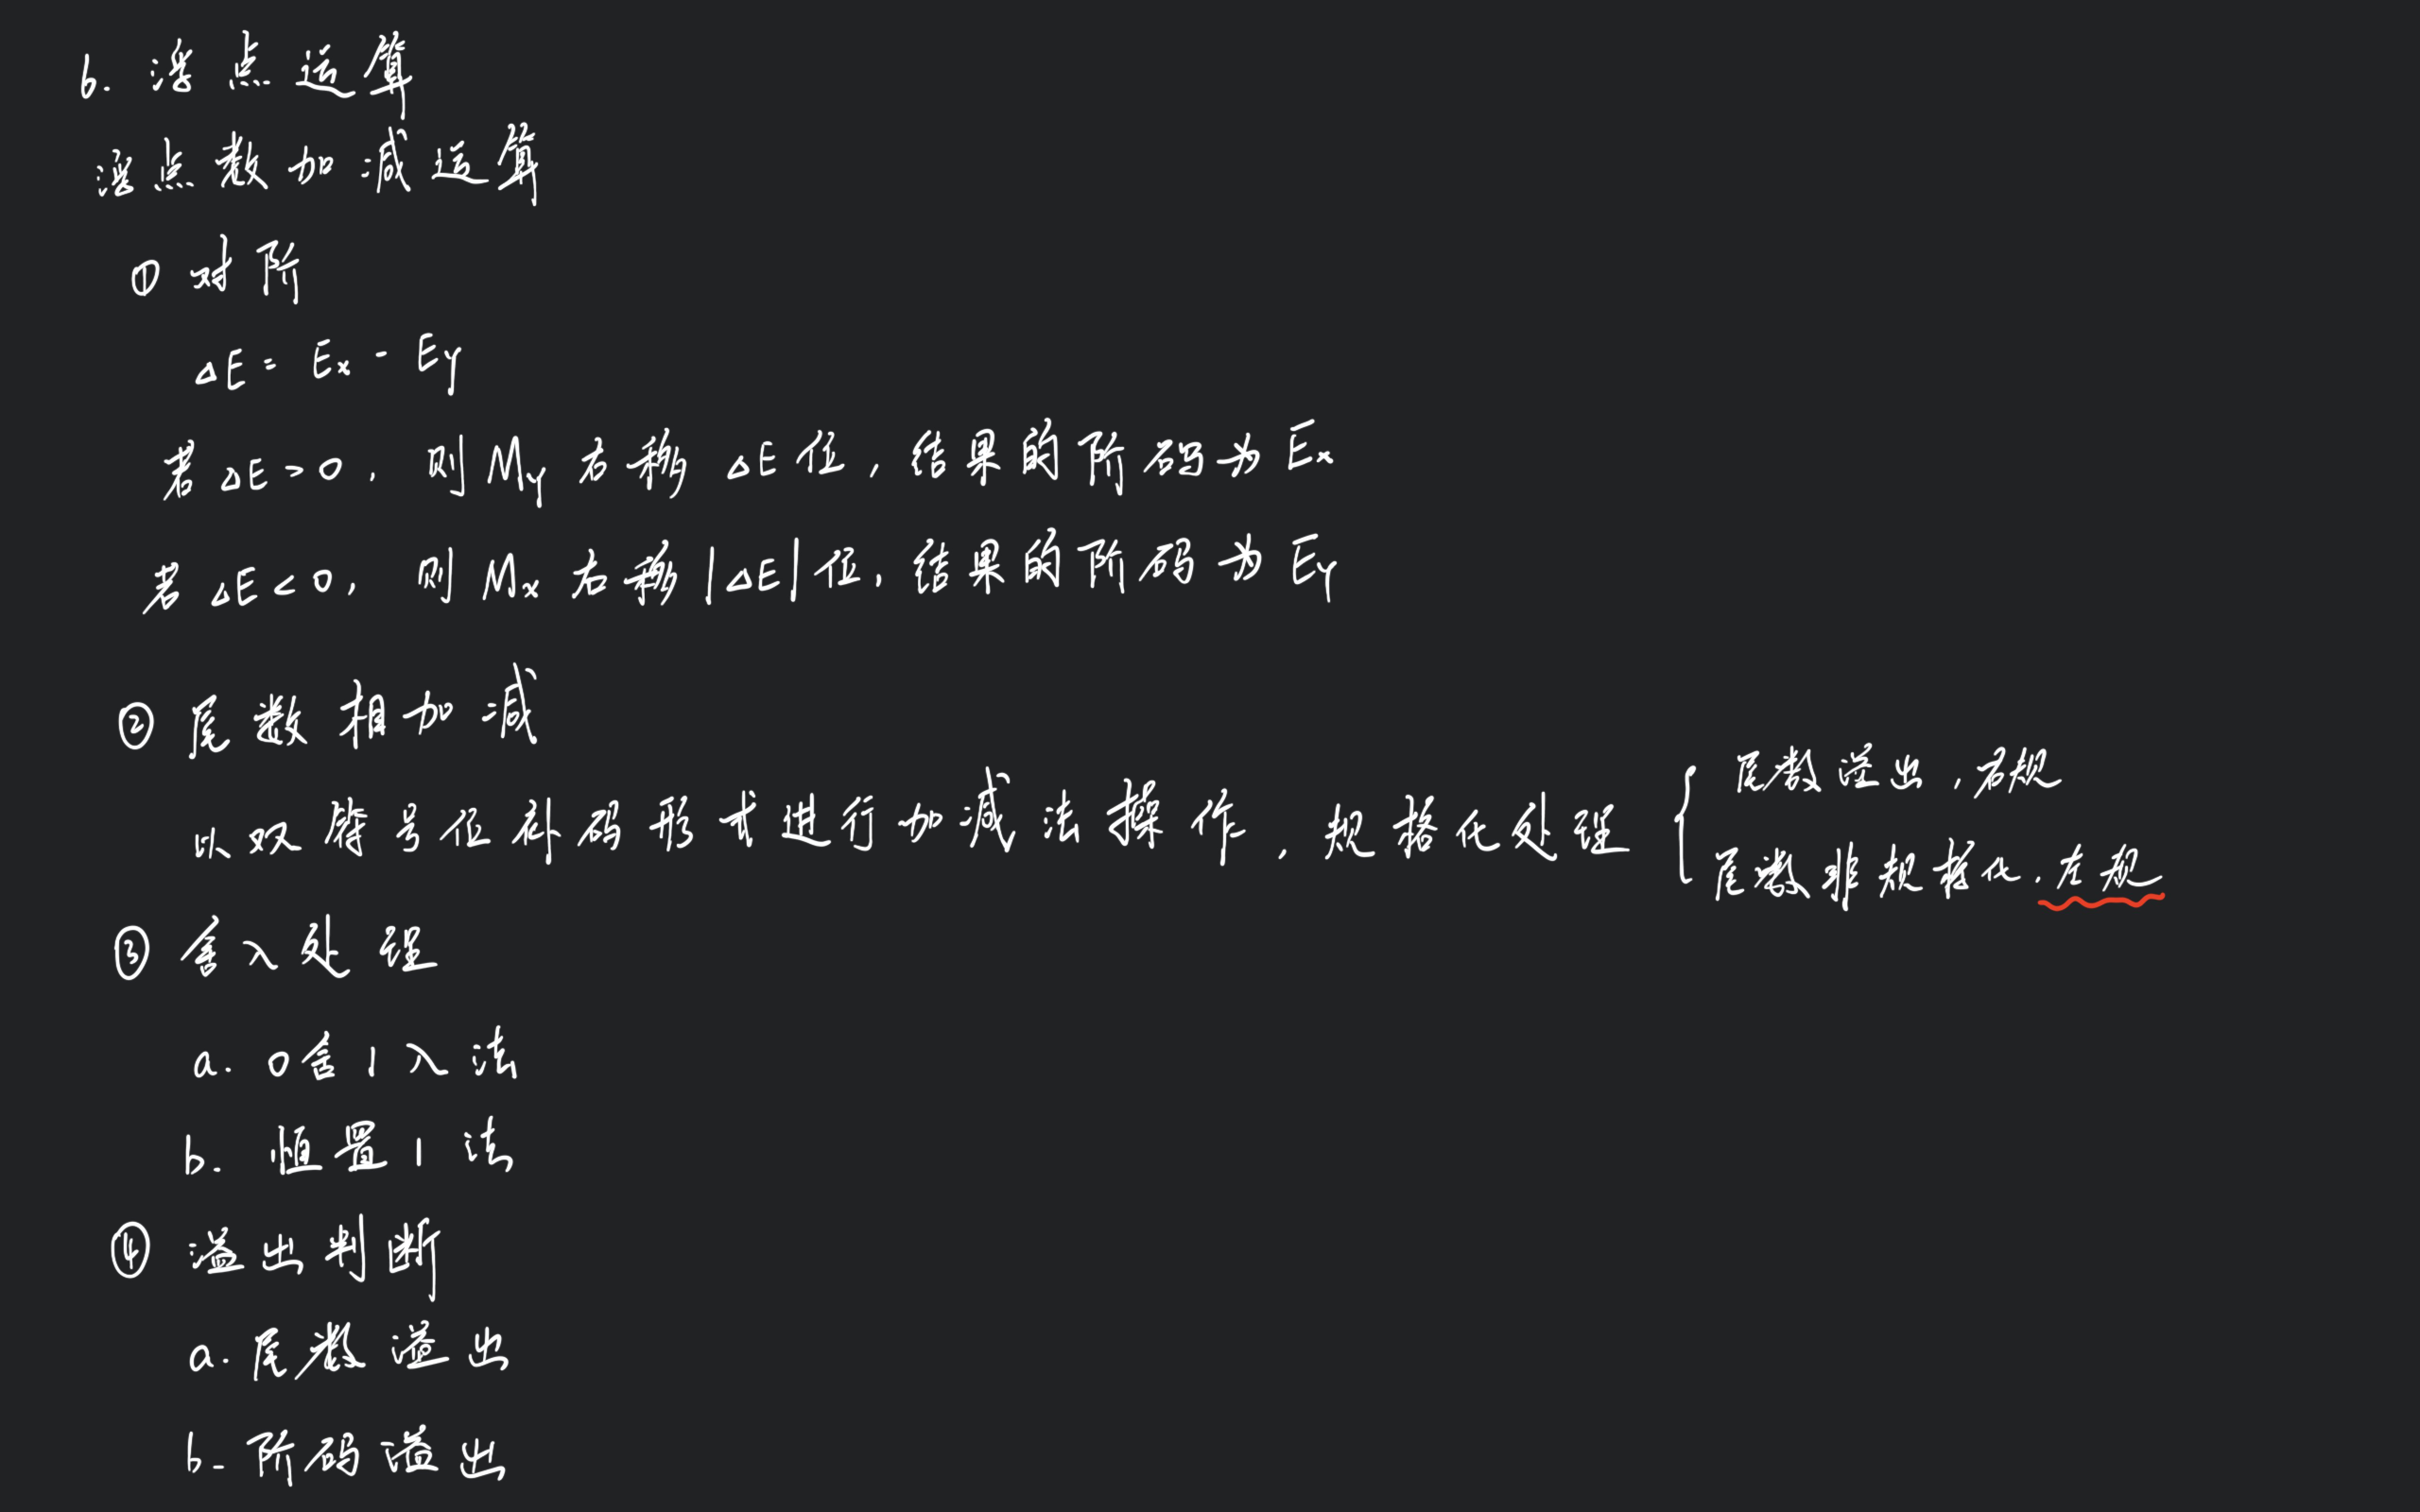 6. 浮点运算
浮点数加减运算
① 对阶
△E = Ex - Ey
若△E>0, 则My右移△E位, 结果的阶码为Ex
若△E<0, 则Mx右移|△E|位, 结果的阶码为Ey
② 尾数相加减
尾数溢出, 右规
以双符号位补码形式进行加减法操作, 规格化处理
尾数非规格化, 左规
③ 舍入处理
a. 0舍1入法
b. 恒置1法
④ 溢出判断
a. 尾数溢出
b. 阶码溢出